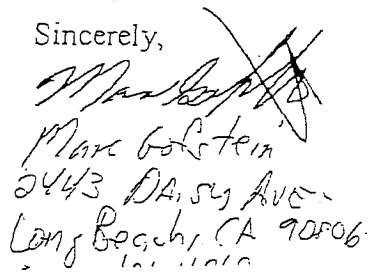 Sincerely,
Marc Gofstein
2443 Daisy Ave.
Long Beach, CA 90806